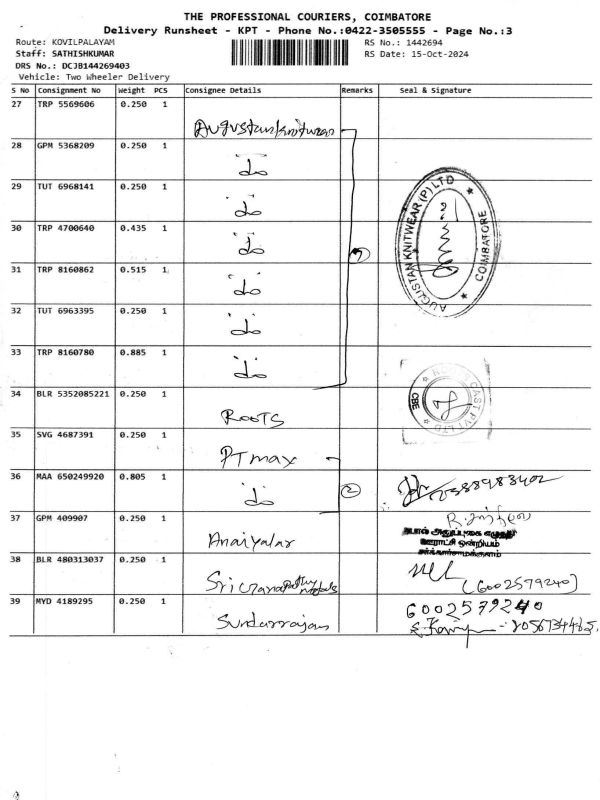 THE PROFESSIONAL COURIERS, COIMBATORE
Delivery Runsheet - KPT - Phone No.:0422-3505555 - Page No.:3
Route: KOVILPALAYAM RS No.: 1442694
Staff: SATHISHKUMAR RS Date: 15-Oct-2024
DRS No.: DCJB144269403
Vehicle: Two Wheeler Delivery
S No Consignment No Weight PCS Consignee Details Remarks Seal & Signature
27 TRP 5569606 0.250 1
Augustan Knitwear
28 GPM 5368209 0.250 1
do
29 TUT 6968141 0.250 1
do
AUGUSTAN KNITWEAR (P) LTD
COIMBATORE
30 TRP 4700640 0.435 1
do 7
31 TRP 8160862 0.515 1
do
32 TUT 6963395 0.250 1
do
33 TRP 8160780 0.885 1
do
CAST PVT LTD
CBE
34 BLR 5352085221 0.250 1
Roots
35 SVG 4687391 0.250 1
PT max
36 MAA 650249920 0.805 1
do 2
37 GPM 409907 0.250 1
Anaiyalar
தபால் அனுப்புகை எழுத்தர்
ஊராட்சி ஒன்றியம்
சர்க்கார்சாமக்குளம்
38 BLR 480313037 0.250 1
Sri
(6002579240)
39 MYD 4189295 0.250 1
Sundarrajan
6002579240